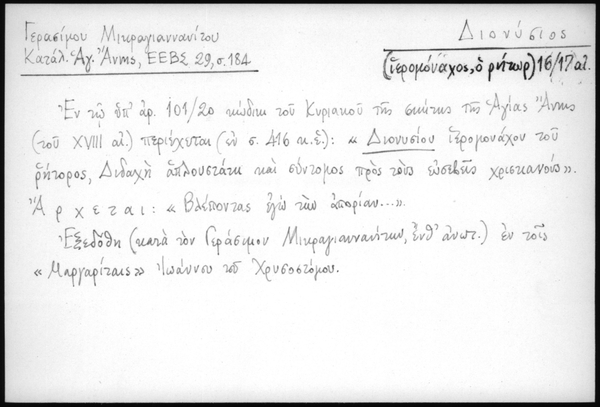 Γερασίμου Μικραγιαννανίτου
Κατάλ. Ἁγ. Ἄννης, ΕΕΒΣ 29, σ. 184
Διονύσιος
(ἱερομόναχος, ὁ ῥήτωρ) 16/17 αἰ.
Ἐν τῷ ὑπ' ἀρ. 101/20 κώδικι τοῦ Κυριακοῦ τῆς σκήτης τῆς Ἁγίας Ἄννης
(τοῦ XVIII αἰ.) περιέχεται (ἐν σ. 416 κ.ἑ.): « Διονυσίου ἱερομονάχου τοῦ
ῥήτορος, Διδαχὴ ἁπλουστάτη καὶ σύντομος πρὸς τοὺς εὐσεβεῖς χριστιανούς».
Ἄρχεται: « Βλέποντας ἐγὼ τὴν ἀπορίαν...».
Ἐξεδόθη (κατὰ τὸν Γεράσιμον Μικραγιαννανίτην, ἔνθ' ἀνωτ.) ἐν τοῖς
« Μαργαρίταις» Ἰωάννου τοῦ Χρυσοστόμου.